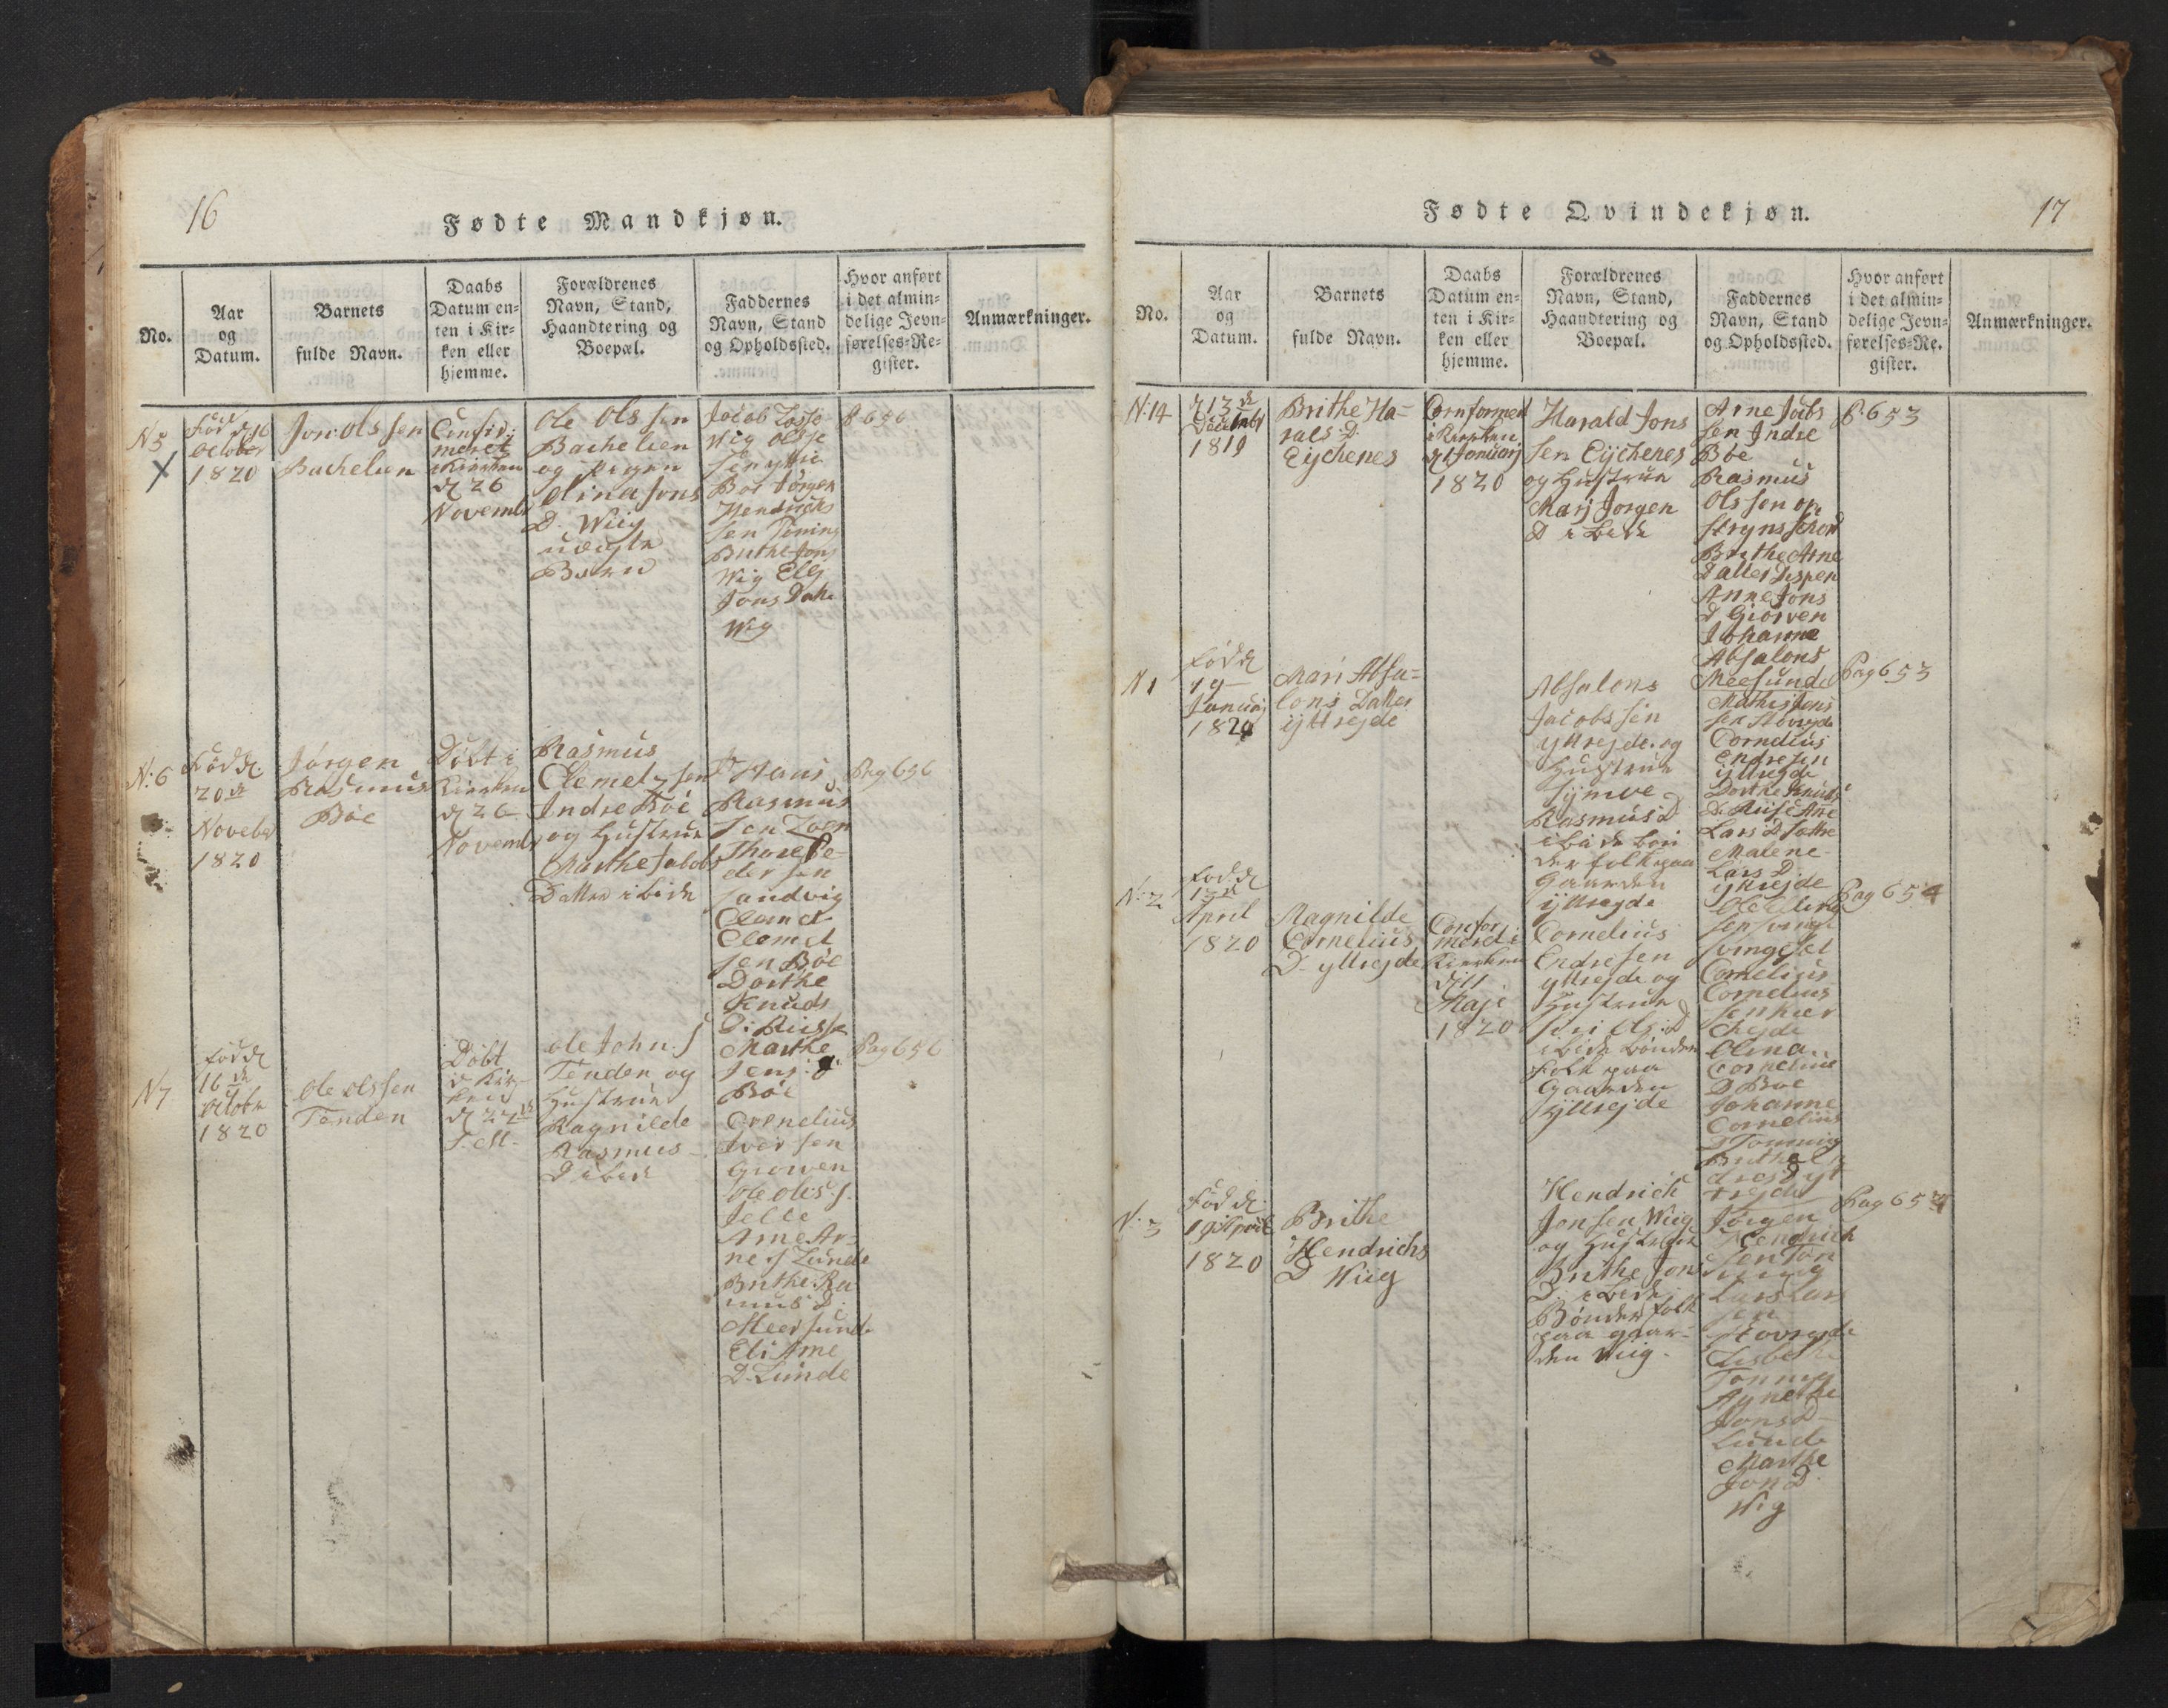 16
Fødte Mandkjøn.
No.
Aar
og
Datum.
Barnets
fulde Navn.
Daabs
Datum en-
ten i Kir-
ken eller
hjemme.
Forældrenes
Navn, Stand,
Haandtering og
Boepæl.
Faddernes
Navn, Stand
og Opholdssted.
Hvor anført
i det almin-
delige Jevn-
førelses-Re-
gister.
Anmærkninger.
N 5
Fød d 16
October
1820
Jon Olssen
Bachelien
Confir-
meret
i Kirken
d 26
Novembr
Ole Olssen
Bachelien
og Pigen
Olina Jons
D. Wiig
uægte
Barn
Jacob
Wig Olsse
Boe Jørgen
Hendrichs
sen
Brithe Jons
Wig Elj
Jons Datr
Wig
P 656
N: 6
Fød d.
20de
Novebr
1820
Jørgen
Rasmus
Bøe
Døbt i
Kirken
d 26
Novembr
Rasmus
Clemetzsen
Indre Bøe
og Hustrue
Marthe Jakobs
Datter ibide
Hans
Rasmus
sen Loen
Thore Pe-
dersen
Sandvig
Clemet
Clemet
sen Bøe
Dorthe
Knuds
D. Riisse
Marthe
Jens
Bøe
Pag 656
N 7
Fød d
16 de
Octobr
1820
Ole Olssen
Tenden
Døbt
i Kir-
ken
d 27 de
Ole John. S
Tenden og
Hustrue
Ragnilde
Rasmus-
D ibide
Cornelius
Iversen
Giørven
Ole Ols: S.
Arne Ar-
ne S Lunde
Brithe Ra
mus D.
Meersunde
Eli Arne
D. Lunde
Pag 656
17
Fødte Qvindekjøn.
No.
Aar
og
Datum.
Barnets
fulde Navn.
Daabs
Datum en-
ten i Kir-
ken eller
hjemme.
Forældrenes
Navn, Stand,
Haandtering og
Boepæl.
Faddernes
Navn, Stand
og Opholdssted.
Hvor anført
i det almin-
delige Jevn-
førelses-Re-
gister.
Anmærkninger.
N: 14
d 13 de
Decembr
1819
Brithe Ha-
rals. D.
Eijchenes
Conformert
i Kirken
d 1 Januarj
1820
Harald Jons
sen Eijchenes
og Hustrue
Marj Jorgen
D ibide
Arne Jacobs
sen Indre
Bøe
Rasmus
Olssen op
Brithe Arne
Datter
Anne Jons
D Giørven
Johanne
Absalons
Meesunde
P 653
N 1
Fød d
19
Januarj
1820
Mari Absa-
lons Datter
yttrejde
Absalons
Jacobssen
yttrejde og
Hustrue
Synve
Rasmus D
ibide Bøn
der folk paa
Gaarden
yttrejde
Mathis Jens
sen Storejde
Cornelius
Endresen
yttrejde
Dorthe Knuds
D. Riise Anne
Lars D Sætre
Malene
Lars D.
yttrejde
Pag 653
N: 2
Fød d
13 d
April
1820
Magnilde
Cornelius
D. yttrejde
Confor
meret i
Kirken
d 11
Maje
1820
Cornelius
Endresen
yttrejde og
Hustrue
Siri Ols: D
ibide bønder
folk paa
Gaarden
yttrejde
svingset
Cornelius
Cornelius
Olina
Cornelius
D Bøe
Johanne
Cornelius
D Tonning
Brithe En
dres D yt
trejde
Pag 654
N: 3
Fød d
19 April
1820
Brithe
Hendrichs
D Wiig
Hendrich
Jonsen Wiig
og Hustrue
Brithe Jons
D. ibide
Bønder folk
paa gaar-
den Wiig.
Jørgen
Hendrich
sen Ton
ning
Lars Lars
sen
Storejde
Lisbethe
Tonning
Agnethe
Jons D
Lunde
Marthe
Jon D.
Wig
Pag 654